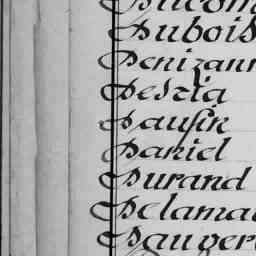 Ducom
Dubois
Denizann
Deszia
Dausin
Daniel
Durand
Delama
Dauger